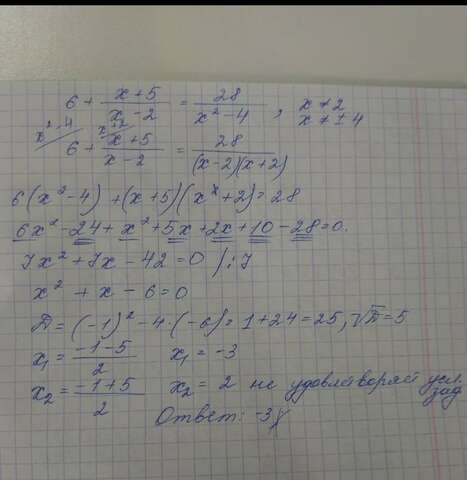 6 + (x+5)/(x-2) = 28/(x²-4), x ≠ 2
x ≠ ± 4
x²-4/ 6 + x+2/ (x+5)/(x-2) = 28/((x-2)(x+2))
6(x²-4) + (x+5)(x+2) = 28
6x² - 24 + x² + 5x + 2x + 10 - 28 = 0.
7x² + 7x - 42 = 0 /:7
x² + x - 6 = 0
D = (-1)² - 4·(-6) = 1 + 24 = 25, √D = 5
x₁ = (-1-5)/2 x₁ = -3
x₂ = (-1+5)/2 x₂ = 2 не удовлетворяй усл. зад
Ответ: -3